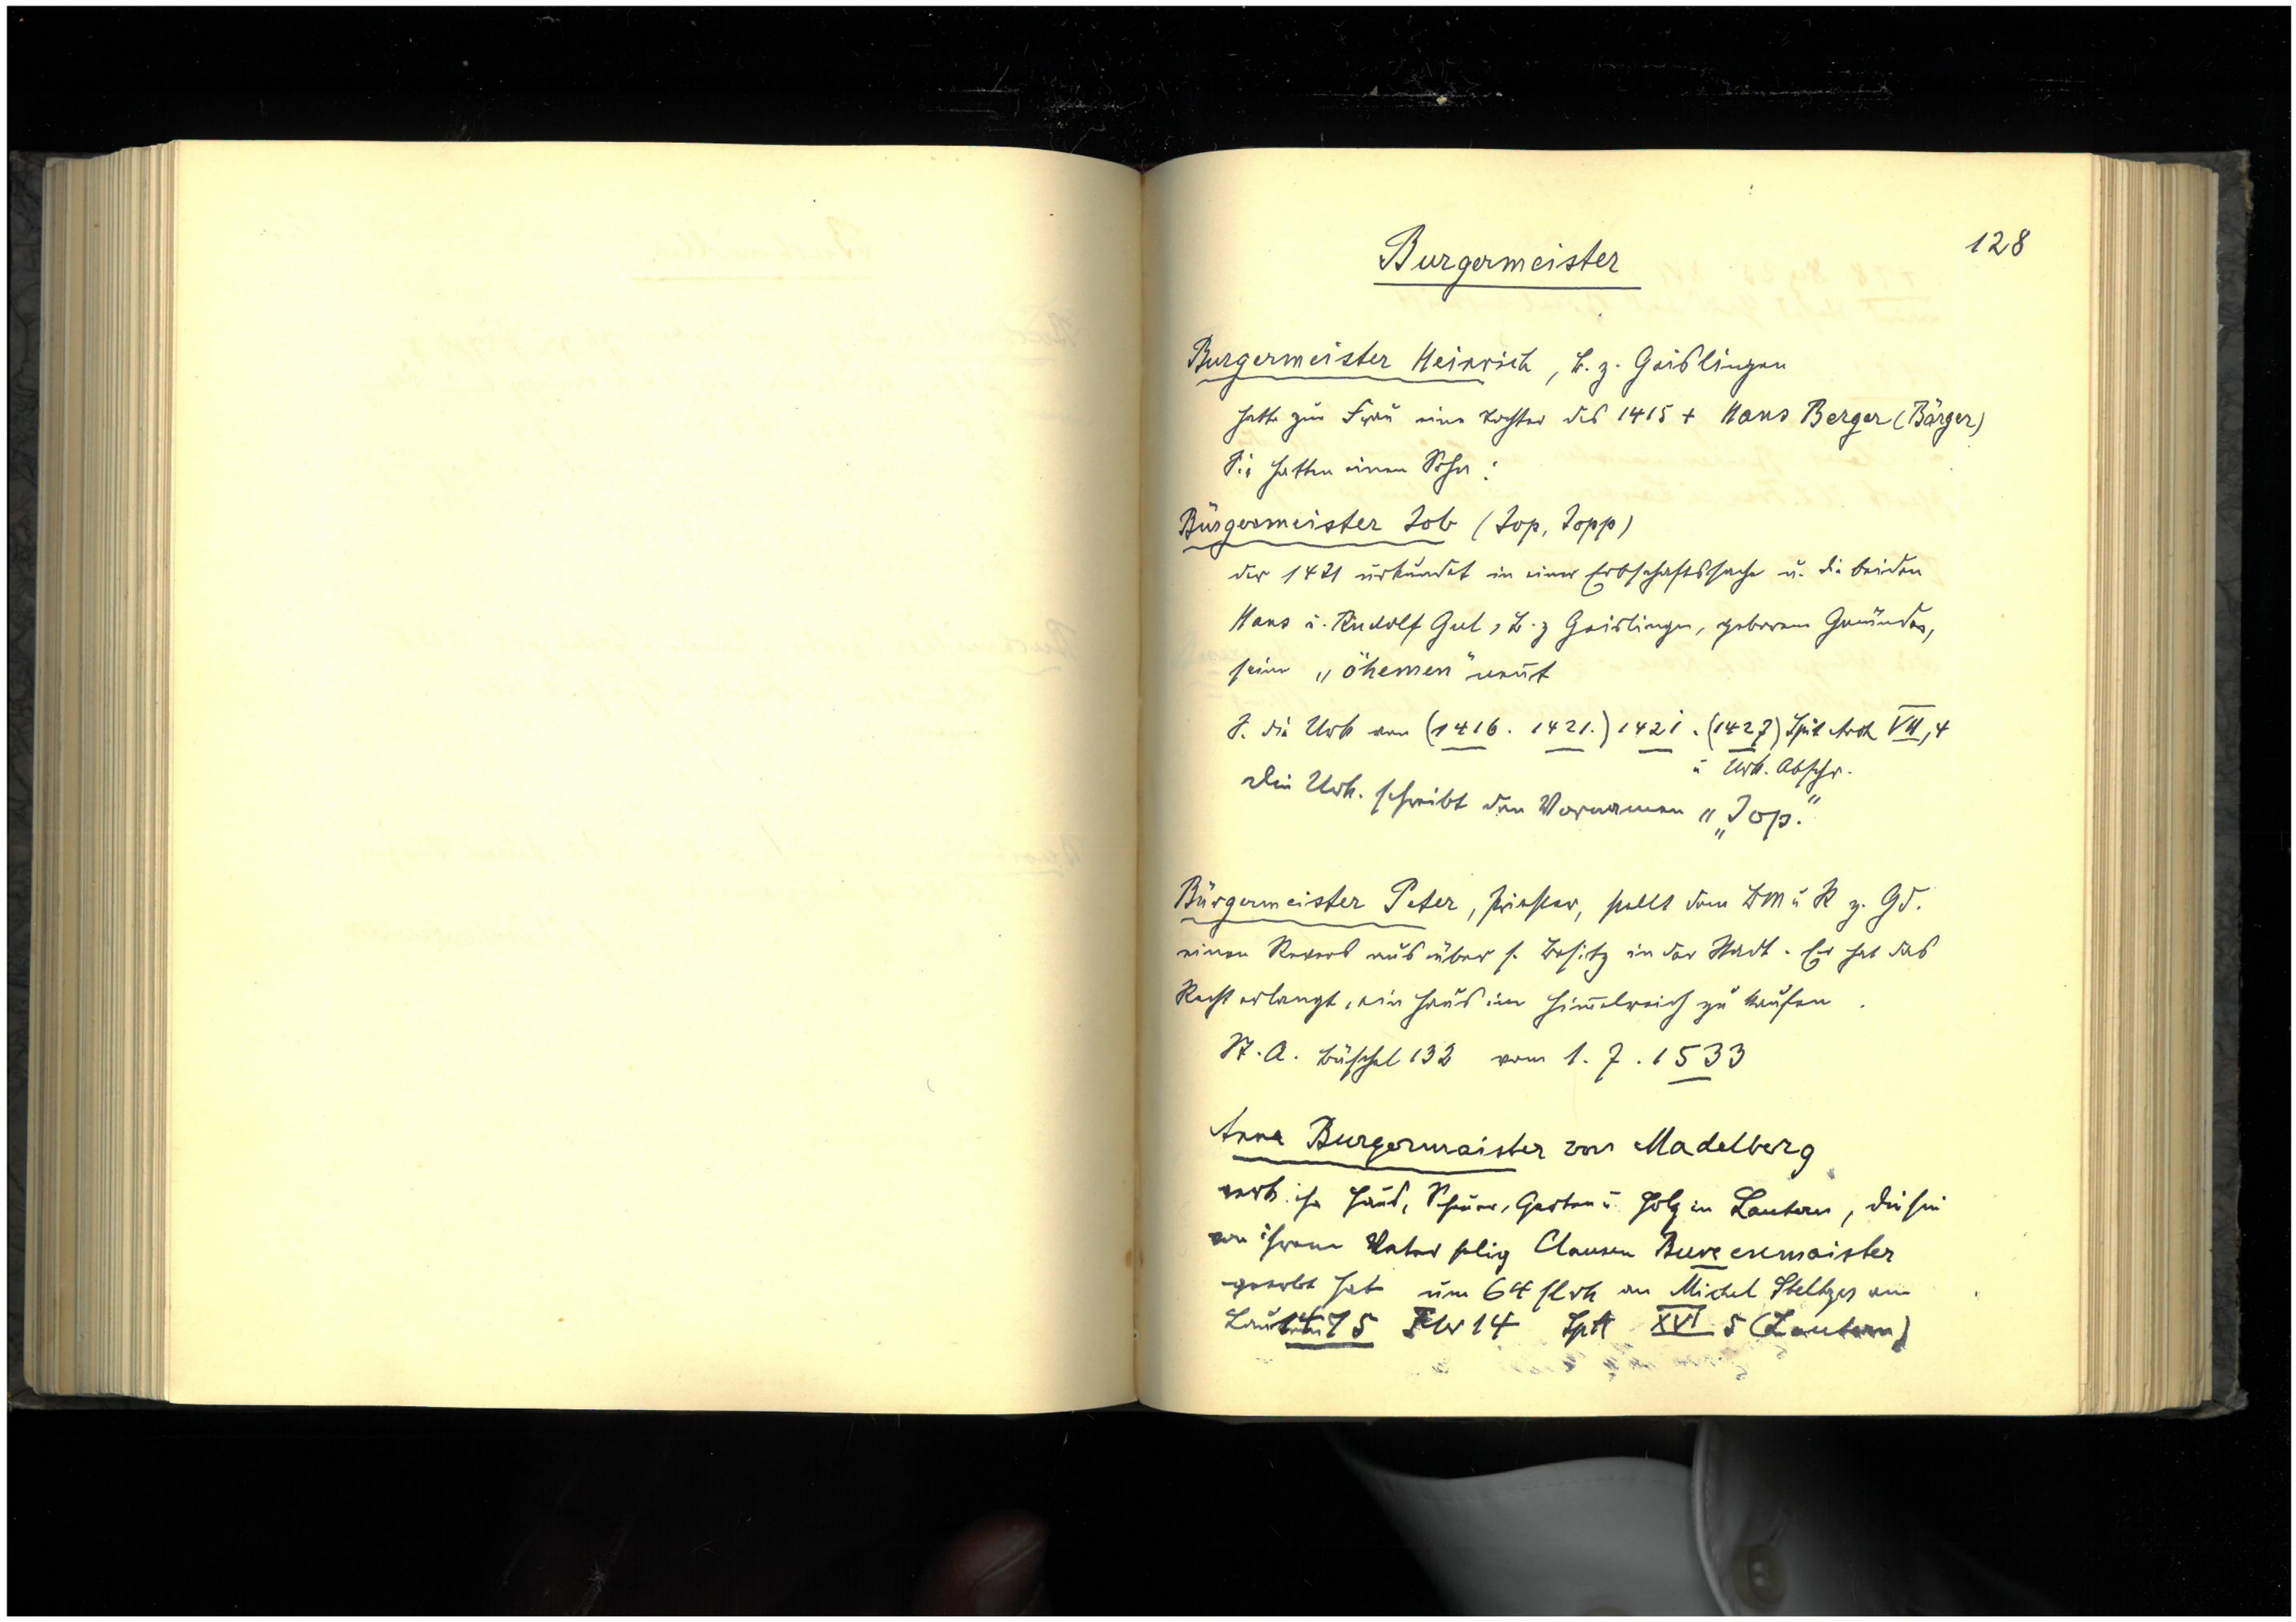 128
Burgermeister
Burgermeister Heinrich, B. z. Geislingen
hatte zur Frau eine Tochter des 1415 + Hans Berger (Bärger)
Sie hatten einen Sohn:
Bürgermeister Job (Jop, Jopp)
der 1421 urkundet in einer Erbschaftssache u. die beiden
Hans u. Rudolf Gul, B. z Geislingen, geborene Gmünder,
seine „öhemen" nennt
S. die Urk von (1416. 1421.) 1421. (1427) Spit Arch VII, 4
u Urk. Abschr.
Die Urk. schreibt den Vornamen „Jop."
Bürgermeister Peter, Priester, stellt dem BM u R z. Gd.
einen Revers aus über s. Besitz in der Stadt. Er hat das
Recht erlangt, ein Haus im Himelreich zu kaufen.
St. A. Büschel 132 vom 1. 7. 1533
Anna Burgermaister von Madelberg
verk. ihr Haus, Scheuer, Garten u Holz in Lautern, die sie
von ihrem Vater selig Clausen
geerbt hat um 64 fl rh an Michel
1475 14 Spit XVI 5 (Lautern)